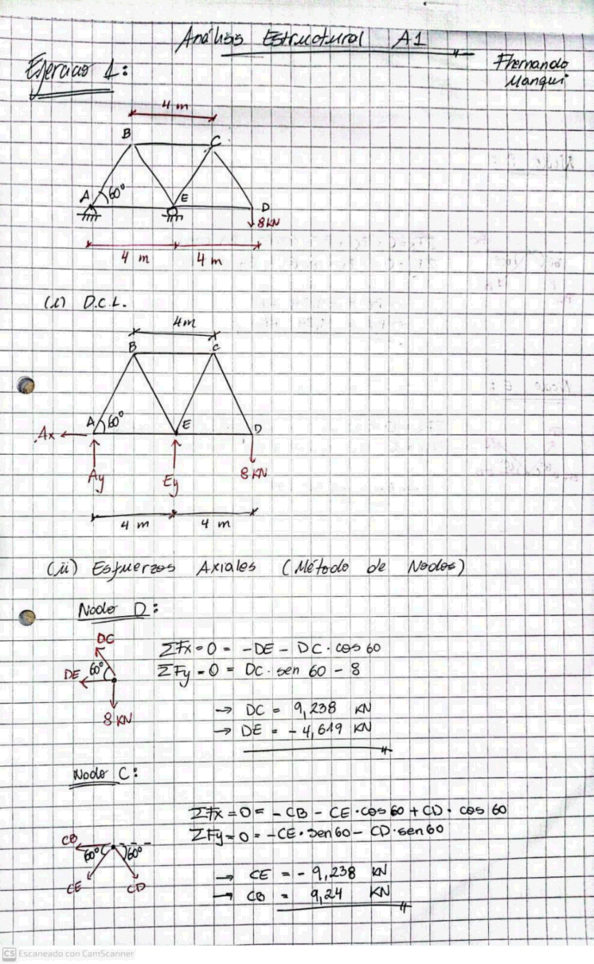 Análisis Estructural A1
Fhernando
Manqui
Ejercicio 1:
4 m
B
C
A
60°
E
D
8 KN
4 m
4 m
(i) D.C.L.
4m
B
C
A
60°
E
D
Ax
Ay
Ey
8 KN
4 m
4 m
(ii) Esfuerzos Axiales (Método de Nodos)
Nodo D:
DC
DE
60°
8 KN
ΣFx=0 = -DE - DC · cos 60
ΣFy=0 = DC · sen 60 - 8
→ DC = 9,238 KN
→ DE = -4,619 KN
Nodo C:
CB
60°
60°
CE
CD
ΣFx=0 = -CB - CE · cos 60 + CD · cos 60
ΣFy=0 = -CE · sen 60 - CD · sen 60
→ CE = -9,238 KN
→ CB = 9,24 KN
CS Escaneado con CamScanner